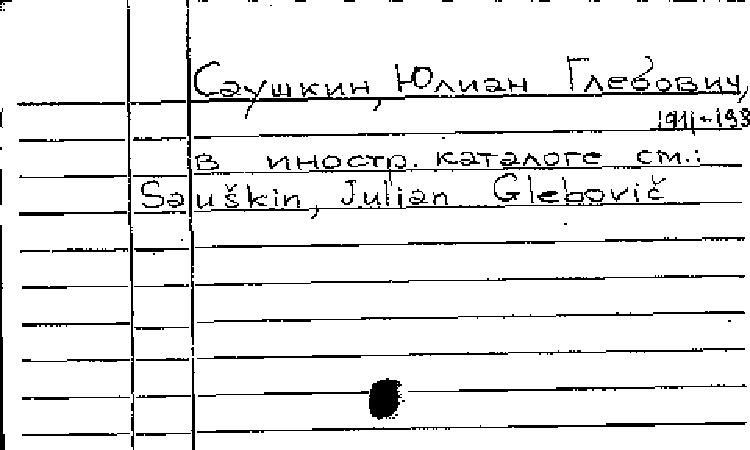 Саушкин, Юлиан Глебович,
1911-198
в иностр. каталоге см.:
Sauškin, Julian Glebovič